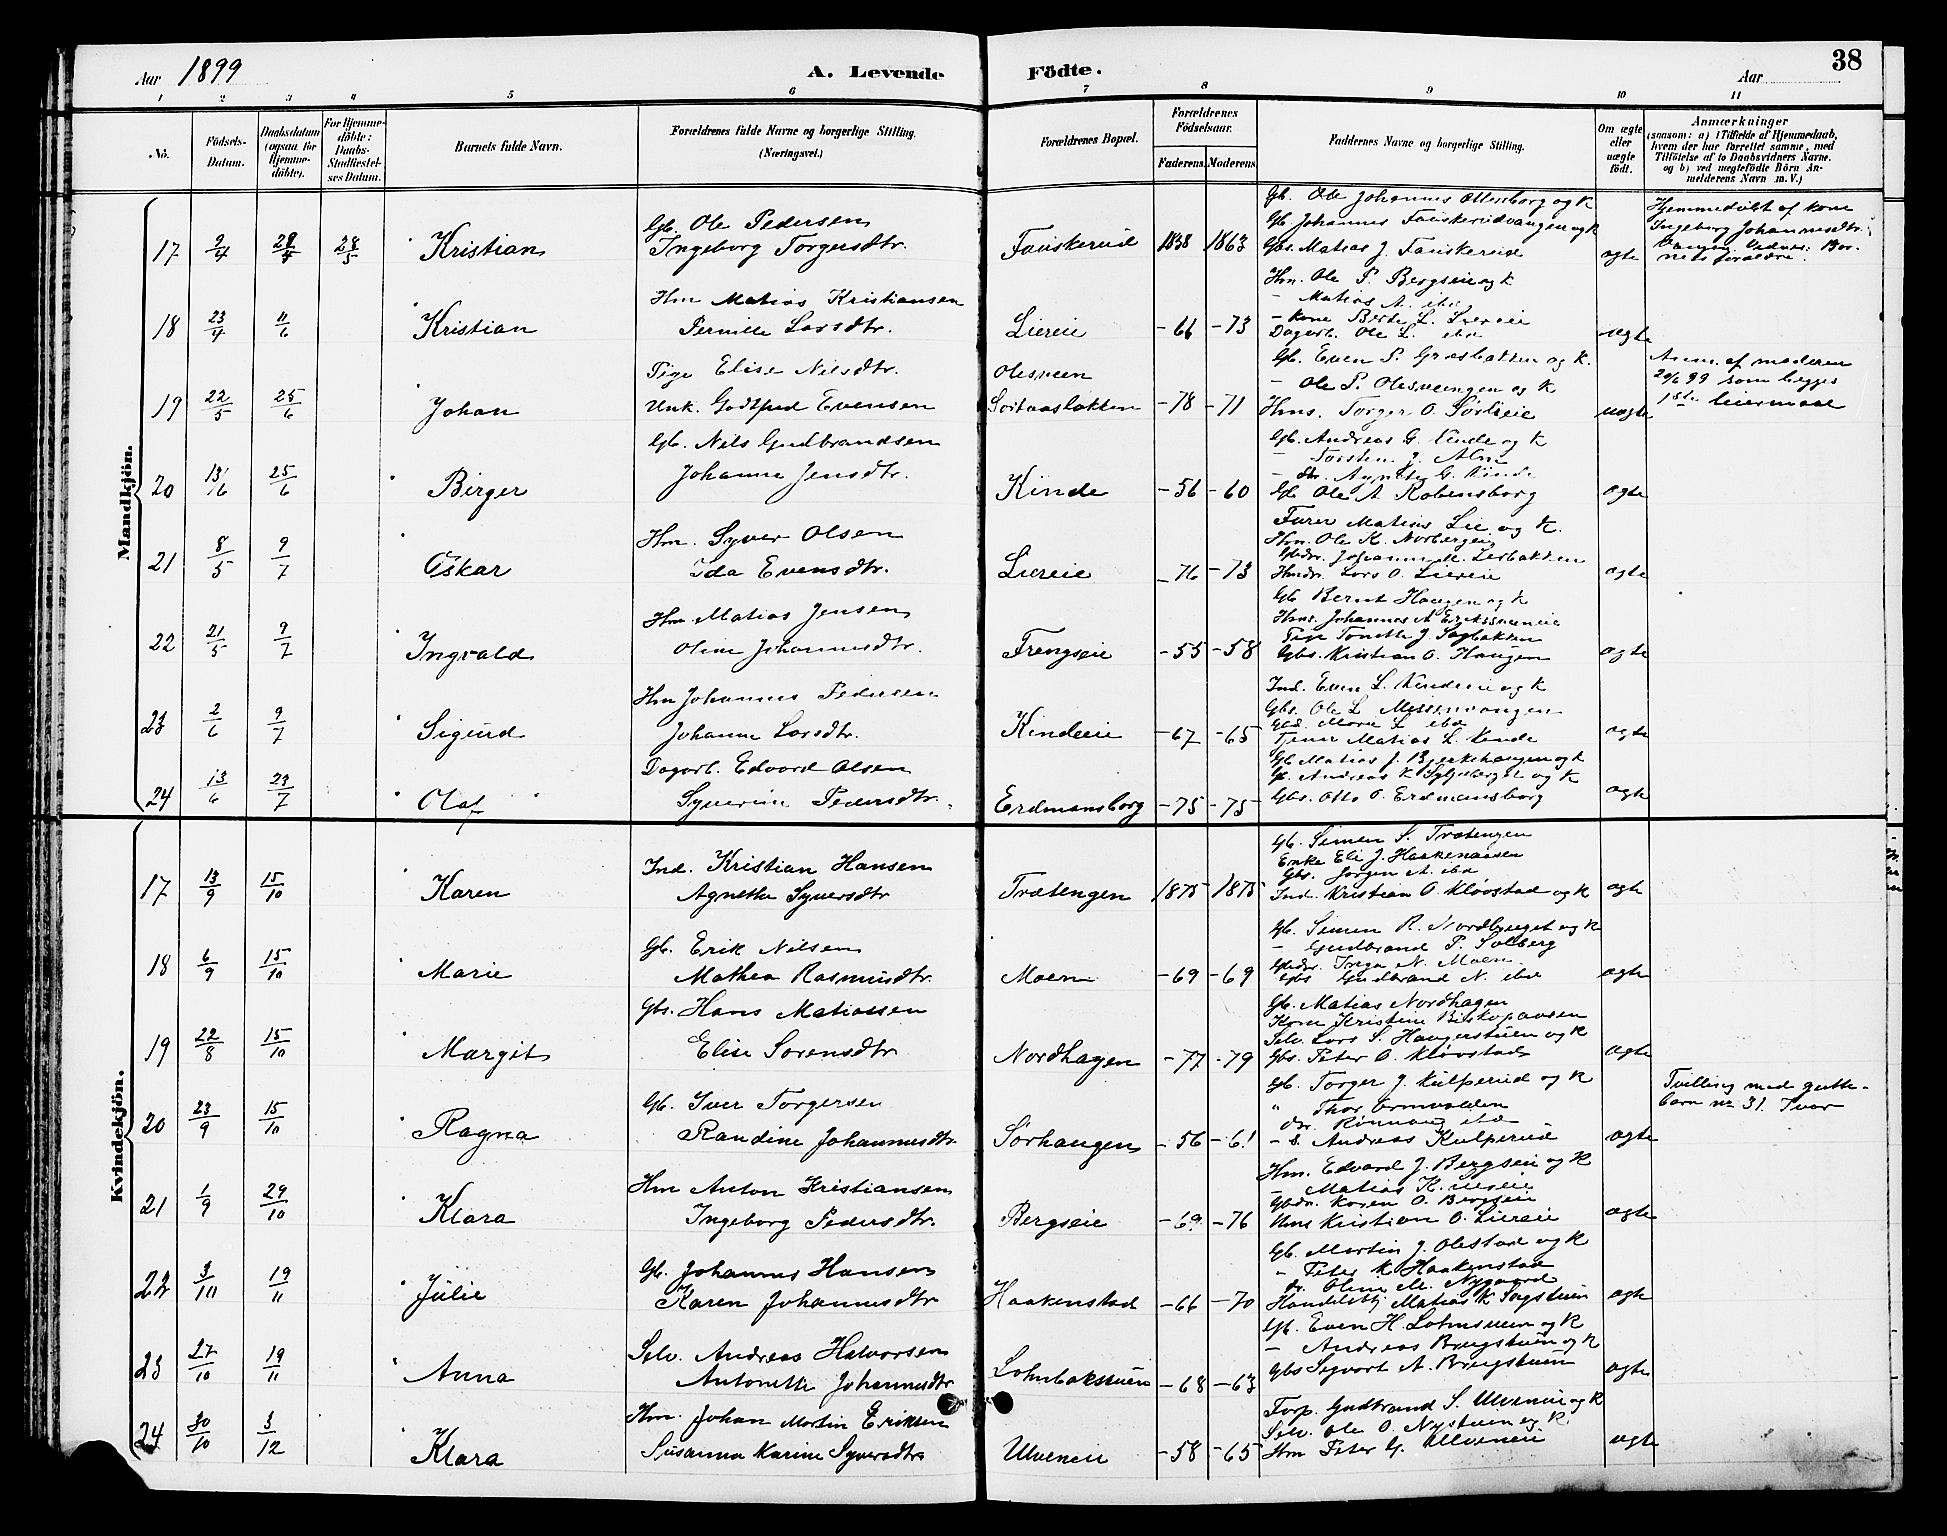 Aar 1899
A. Levende Födte.
Aar
38
1 2 3 4 5 6 7 8 9 10 11
No.
Födsels-Datum.
Daabsdatum (ogsaa for Hjemmedöbte).
For Hjemmedöbte: Daabs-Stadfæstelses Datum.
Barnets fulde Navn.
Forældrenes fulde Navne og borgerlige Stilling. (Næringsvei.)
Forældrenes Bopæl.
Forældrenes Födselsaar.
Faderens.
Moderens.
Faddernes Navne og borgerlige Stilling.
Om ægte eller uægte födt.
Anmærkninger
(saasom: a) i Tilfælde af Hjemmedaab,
hvem der har forrettet samme, med
Tilföielse af to Daabsvidners Navne.
og b) ved uægtefödte Börn An-
melderens Navn m. V.)
Mandkjön.
17 9/4 28/5 Kristian
Gb. Ole Pedersen
Ingeborg Torgersdtr.
Fauskerud 1838 1863
Gb. Ole Johannes Ottenborg og K
Gb Johannes Fauskerudvangen og K
Gbs. Matias J. Fauskerud
ægte
Hjemmedøbt af kone
Ingeborg Johannesdtr.
Vangen. Vidner: Bar-
nets forældre.
18 23/4 11/6 Kristian
Hm Matias Kristiansen
Pernille Larsdtr.
Liereie -66 -73
Hm. Ole P. Bergseie og K
- Matias A. ibd
- kone Berte L. Liereie
Dagarb. Ole L. ibd
ægte
19 22/5 25/6 Johan
Pige Elise Nilsdtr.
Unk. Godtfred Evensen
Olesveen
Sortaasbakken -78 -71
Gb. Even P. Græsbakken og K.
- Ole P. Olesveengen og K
Hms. Torger O. Sørlieie
uægte
Anm. af moderen
20/6 99 som begges
1ste leiermaal
20 13/6 25/6 Birger
Gb. Nils Gudbrandsen
Johanne Jensdtr.
Kinde -56 -60
Gb. Andreas G. Kinde og K
- Torsten J. Alm
- dtr. Agnete G. Kinde
Gb Ole A Robensborg
ægte
21 8/5 9/7 Oskar
Hm. Syver Olsen
Ida Evensdtr.
Liereie -76 -73
Furer Matias Lie og K.
Hm. Ole K. Norbergeie
Gbdr. Johanne M. Liebakken
Hmdr. Lars O. Liereie
ægte
22 21/5 9/7 Ingvald
Hm. Matias Jensen
Oline Johannesdtr.
Frengseie -55 -58
Gb Bernt Haugen og K
Hms. Johannes A Erikssveneie
Pige Tonette J. Sagbakken
Gbs. Kristian O. Haugen
ægte
23 2/6 9/7 Sigurd
Hm Johannes Pedersen
Johanne Larsdtr.
Kindeeie -67 -65
Ind. Even L. Kindeeie og K
Gbs. Ole L Messenvangen
Gbd. Marie L ibd
Tjener Matias L. Kinde
ægte
24 13/6 23/7 Olaf
Dagarb. Edvard Olsen
Syverine Pedersdtr.
Erdmansborg -75 -75
Gb Matias J. Bjerkehaugen og K
Gb. Andreas K Syljuberget og K
Gbs. Otto O. Erdmansborg
ægte
Kvindekjön.
17 13/9 15/10 Karen
Ind. Kristian Hansen
Agnethe Syversdtr
Trætengen 1875 1875
Gb. Simen S. Trætengen
Enke Eli J. Haakenaasen
Gbs. Jørgen A. ibd
Ind. Kristian O. Kløvstad og K
ægte
18 6/9 15/10 Marie
Gb. Erik Nilsen
Mathea Rasmusdtr.
Moen -69 -69
Gb. Simen R. Nordbyeget og K
- Gudbrand P. Solberg
Gbdr. Inga N. Moen
Gbs Gudbrand N. ibd
ægte
19 22/8 15/10 Margit
Gbs. Hans Matiassen
Elise Sorensdtr
Nordhagen -77 -79
Gb. Matias Nordhagen
Kone Kristine Biskopaasen
Selv. Lars S. Haugerstuen og K
Gbs. Peter O. Kløvstad
ægte
20 23/9 15/10 Ragna
Gb. Iver Torgersen
Randine Johannesdtr.
Sørhaugen -56 -61
Gb. Torger J. Kulperud og K
" Thor Ormvolden
dr. Rønnaug ibd
- s. Andreas Kulperud
ægte
Tvilling med gutte-
barn nr 31. Ivar
21 1/9 29/10 Klara
Hm Anton Kristiansen
Ingeborg Pedersdtr.
Bergseie -69 -76
Hm. Edvard J. Bergseie og K
- Matias K. Liereie
Gbdr. Karen O. Bergseie
Hms Kristian O. Liereie
ægte
22 3/10 19/11 Julie
Gb. Johannes Hansen
Karen Johannesdtr
Haakenstad -66 -70
Gb. Martin J. Olestad og K
- Peter K Haakenstad
dr. Oline M. Nygaard
Handelsbtj Matias K Sagstuen
ægte
23 27/10 19/11 Anna
Selv. Andreas Halvorsen
Antonette Johannesdtr
Lohnbakstuen -68 -63
Gb. Even H. Lohnsveen og K
- Andreas Brugstuen og K
Gbs Sigvart A. Brugstuen
ægte
24 30/10 3/12 Klara
Hm. Johan Martin Eriksen
Susanna Karine Syversdtr
Ulveneie -58 -65
Forp. Gudbrand S. Ulveneie og K
Selv. Ole O. Nystuen og K
Hm Peter G. Ulveneie
ægte